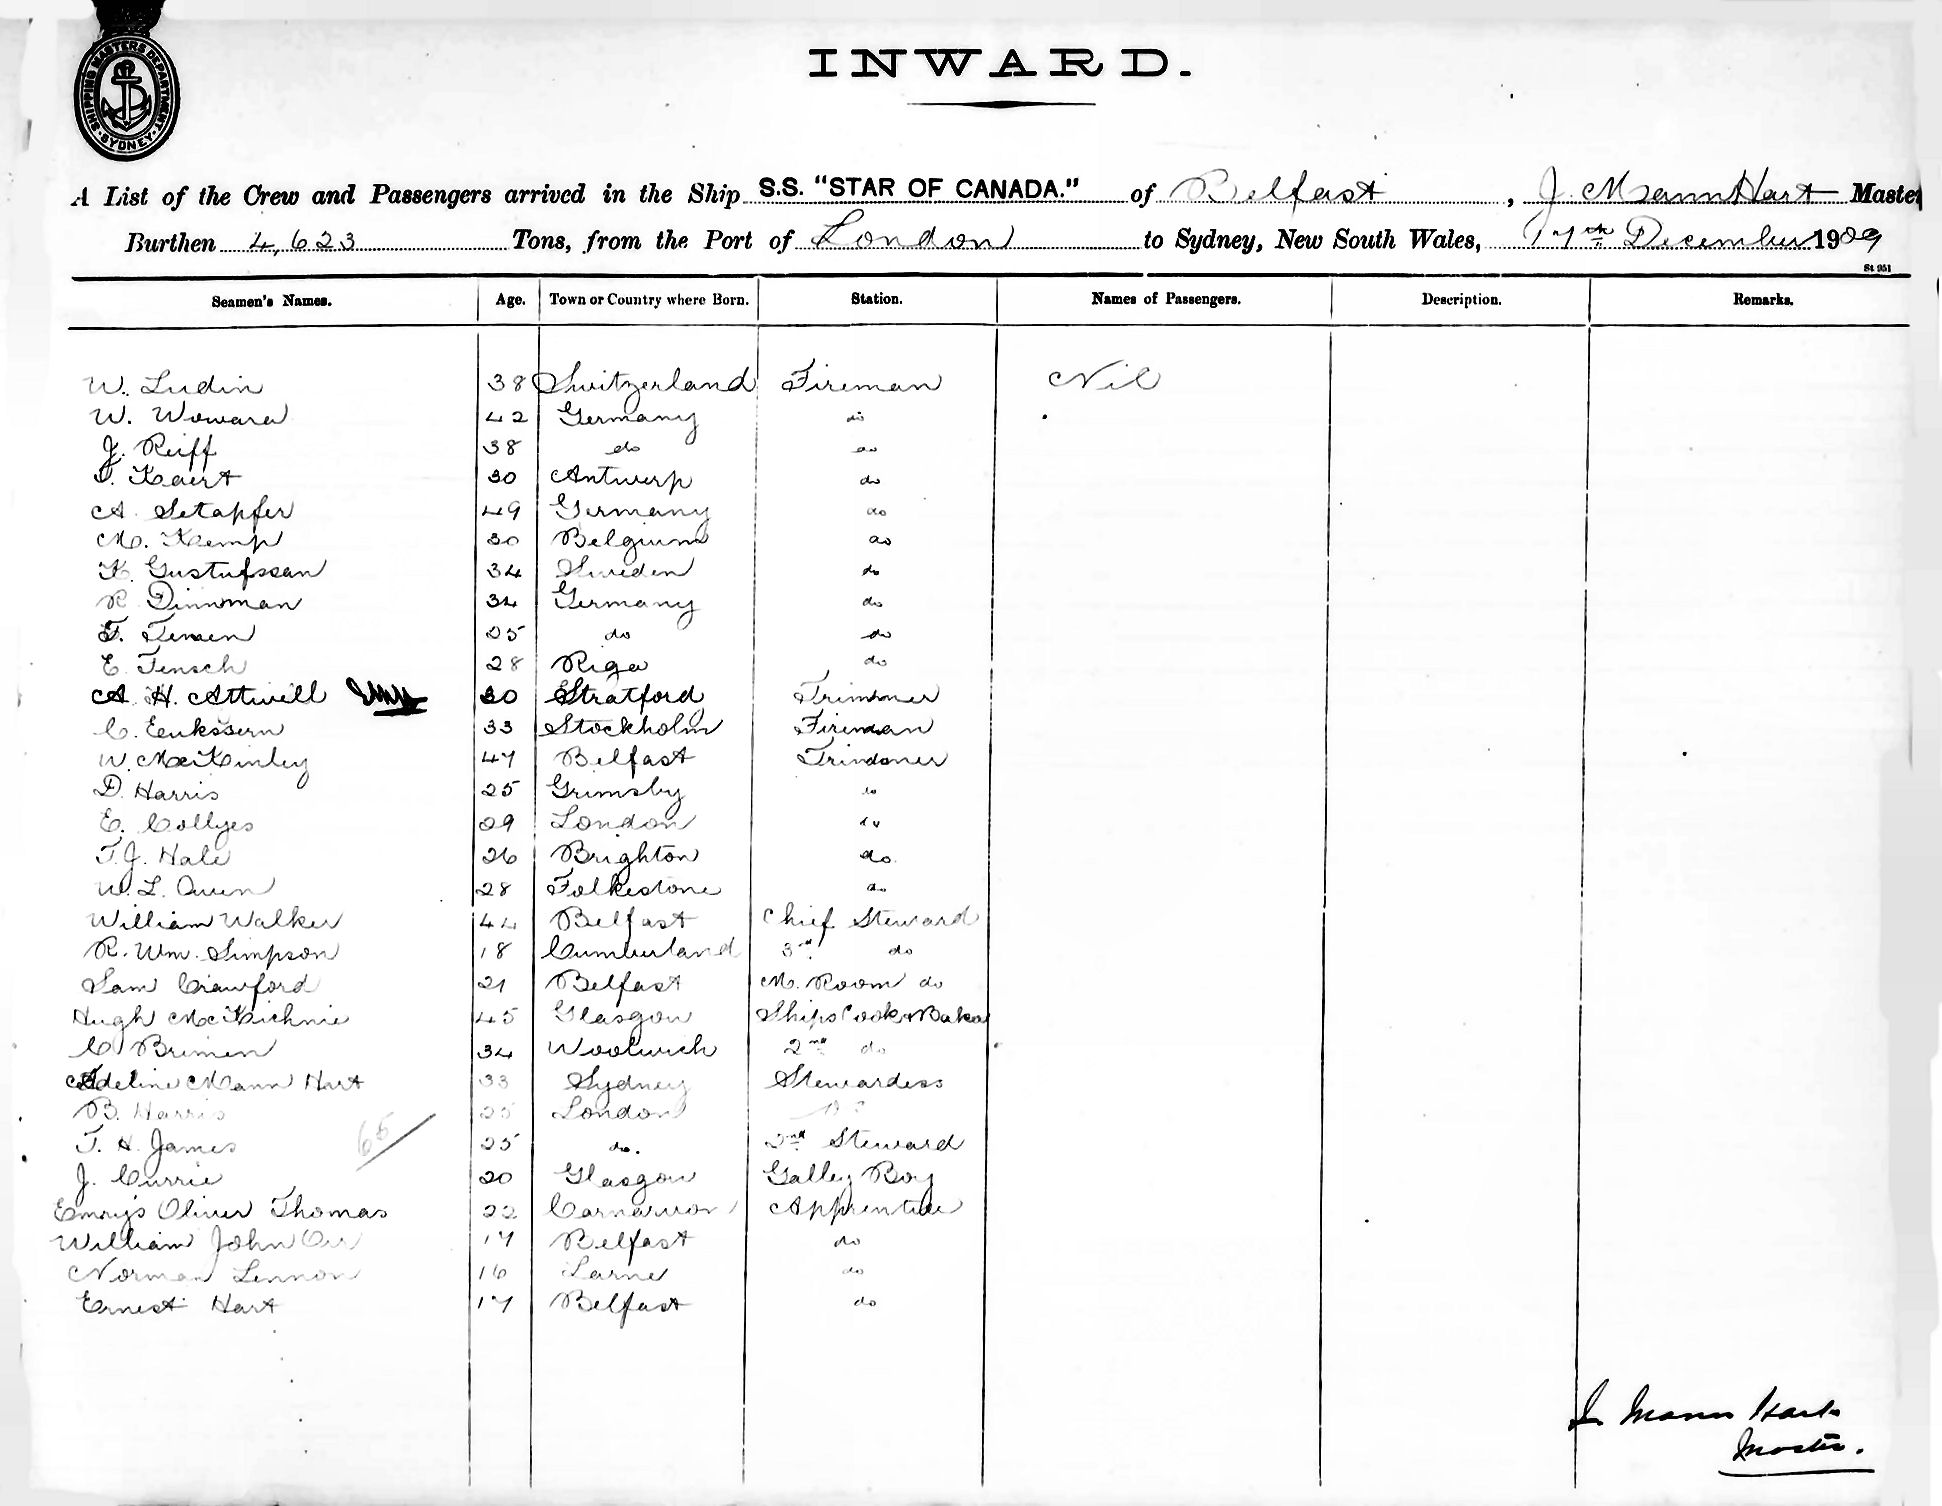 SHIPPING MASTERS DEPARTMENT · SYDNEY ·
INWARD.
A List of the Crew and Passengers arrived in the Ship S.S. "STAR OF CANADA." of Belfast, J. Mann Hart Master
Burthen 4,623 Tons, from the Port of London to Sydney, New South Wales, 17th December 1909
St 951
Seamen's Names. Age. Town or Country where Born. Station. Names of Passengers. Description. Remarks.
W. Ludin 38 Switzerland Fireman Nil
W. Wowara 42 Germany do
J. Reiff 38 do do
Kaert 30 Antwerp do
A. Setapfer 49 Germany do
M. Kemp 30 Belgium do
K. Gustufssan 34 Sweden do
R Dinnman 34 Germany do
F. 25 do do
E. Tensch 28 Riga do
A. H. Attwill 30 Stratford Trimmer
C. 33 Stockholm Fireman
W. McKinley 47 Belfast Trimmer
D. Harris 25 Grimsby do
E. Collyes 29 London do
T. J. Hale 26 Brighton do.
W. L. Owen 28 Folkestone do
William Walker 44 Belfast Chief Steward
R. Wm. Simpson 18 Cumberland 3rd do
Sam Crawford 21 Belfast M. Room do
Hugh McKichnie 45 Glasgow Ships Cook & Baker
C Brimen 34 Woolwich 2nd do
Adeline Mann Hart 33 Sydney Stewardess
B. Harris 25 London
T. H. James 25 do. 2nd Steward
65/
J. Currie 20 Glasgow Galley Boy
Emrys Oliver Thomas 22 Carnarvon Apprentice
William John Orr 17 Belfast do
Norman Lennon 16 Larne do
Ernest Hart 17 Belfast do
J. Mann Hart
Master.